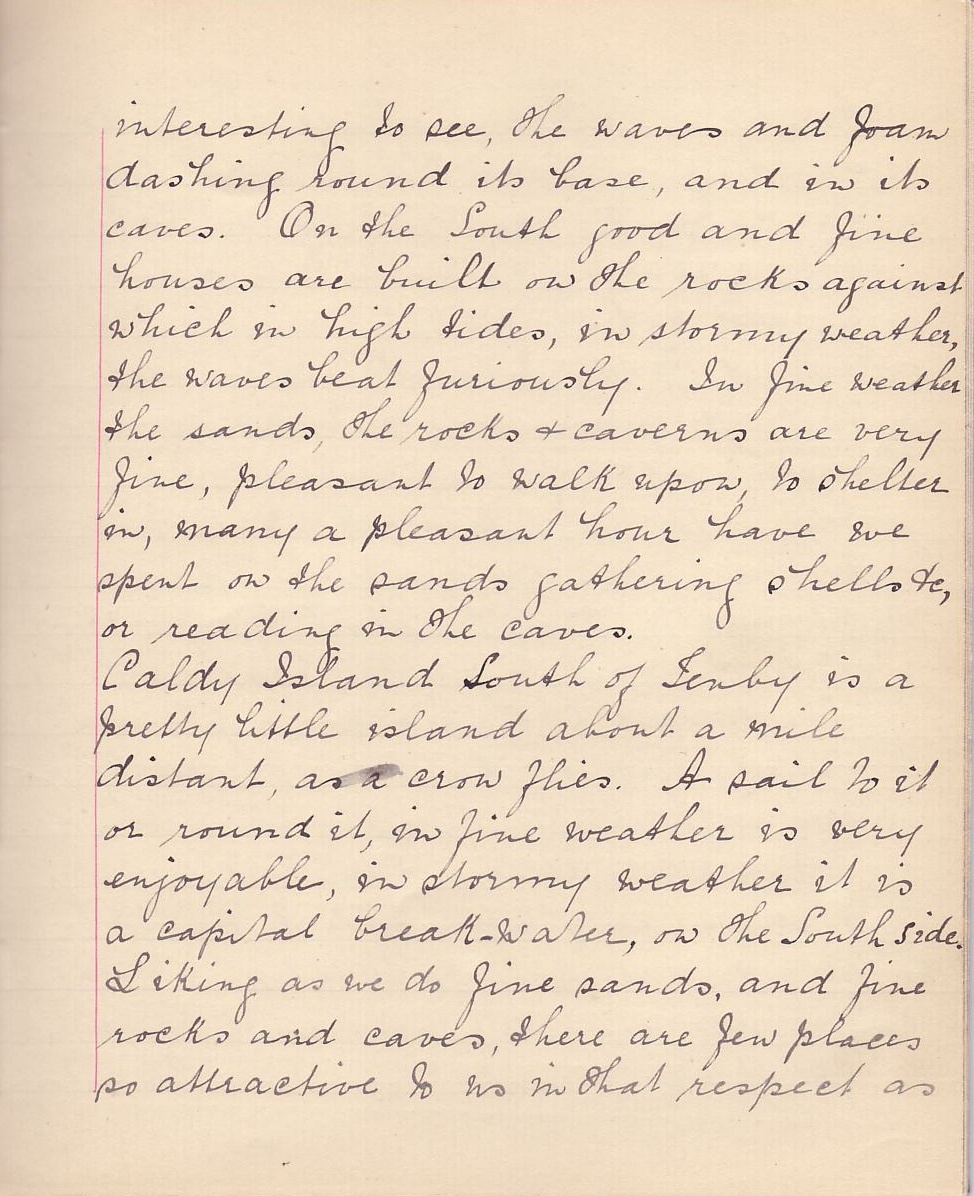 interesting to see, the waves and foam
dashing round its base, and in its
caves. On the South good and fine
houses are built on the rocks against
which in high tides, in stormy weather,
the waves beat furiously. In fine weather
the sands, the rocks & caverns are very
fine, pleasant to walk upon, to shelter
in, many a pleasant hour have we
spent on the sands gathering shells &c,
or reading in the caves.
Caldy Island South of Tenby is a
pretty little island about a mile
distant, as a crow flies. A sail to it
or round it, in fine weather is very
enjoyable, in stormy weather it is
a capital break-water, on the South side.
Liking as we do fine sands, and fine
rocks and caves, there are few places
so attractive to us in that respect as